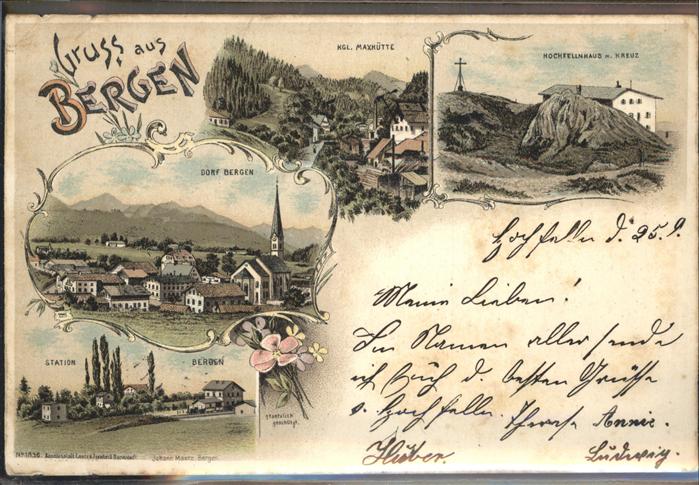 Gruss aus
BERGEN
KGL. MAXHÜTTE
HOCHFELLNHAUS M. KREUZ
DORF BERGEN
STATION BERGEN
gesetzlich
geschützt.
Johann Mantz, Bergen.
Hochfelln d. 25.9.
Meine Lieben!
Im Namen aller sende
ich Euch d. besten Grüsse
v. Hochfelln. Therese Annie.
Huber. Ludwig.